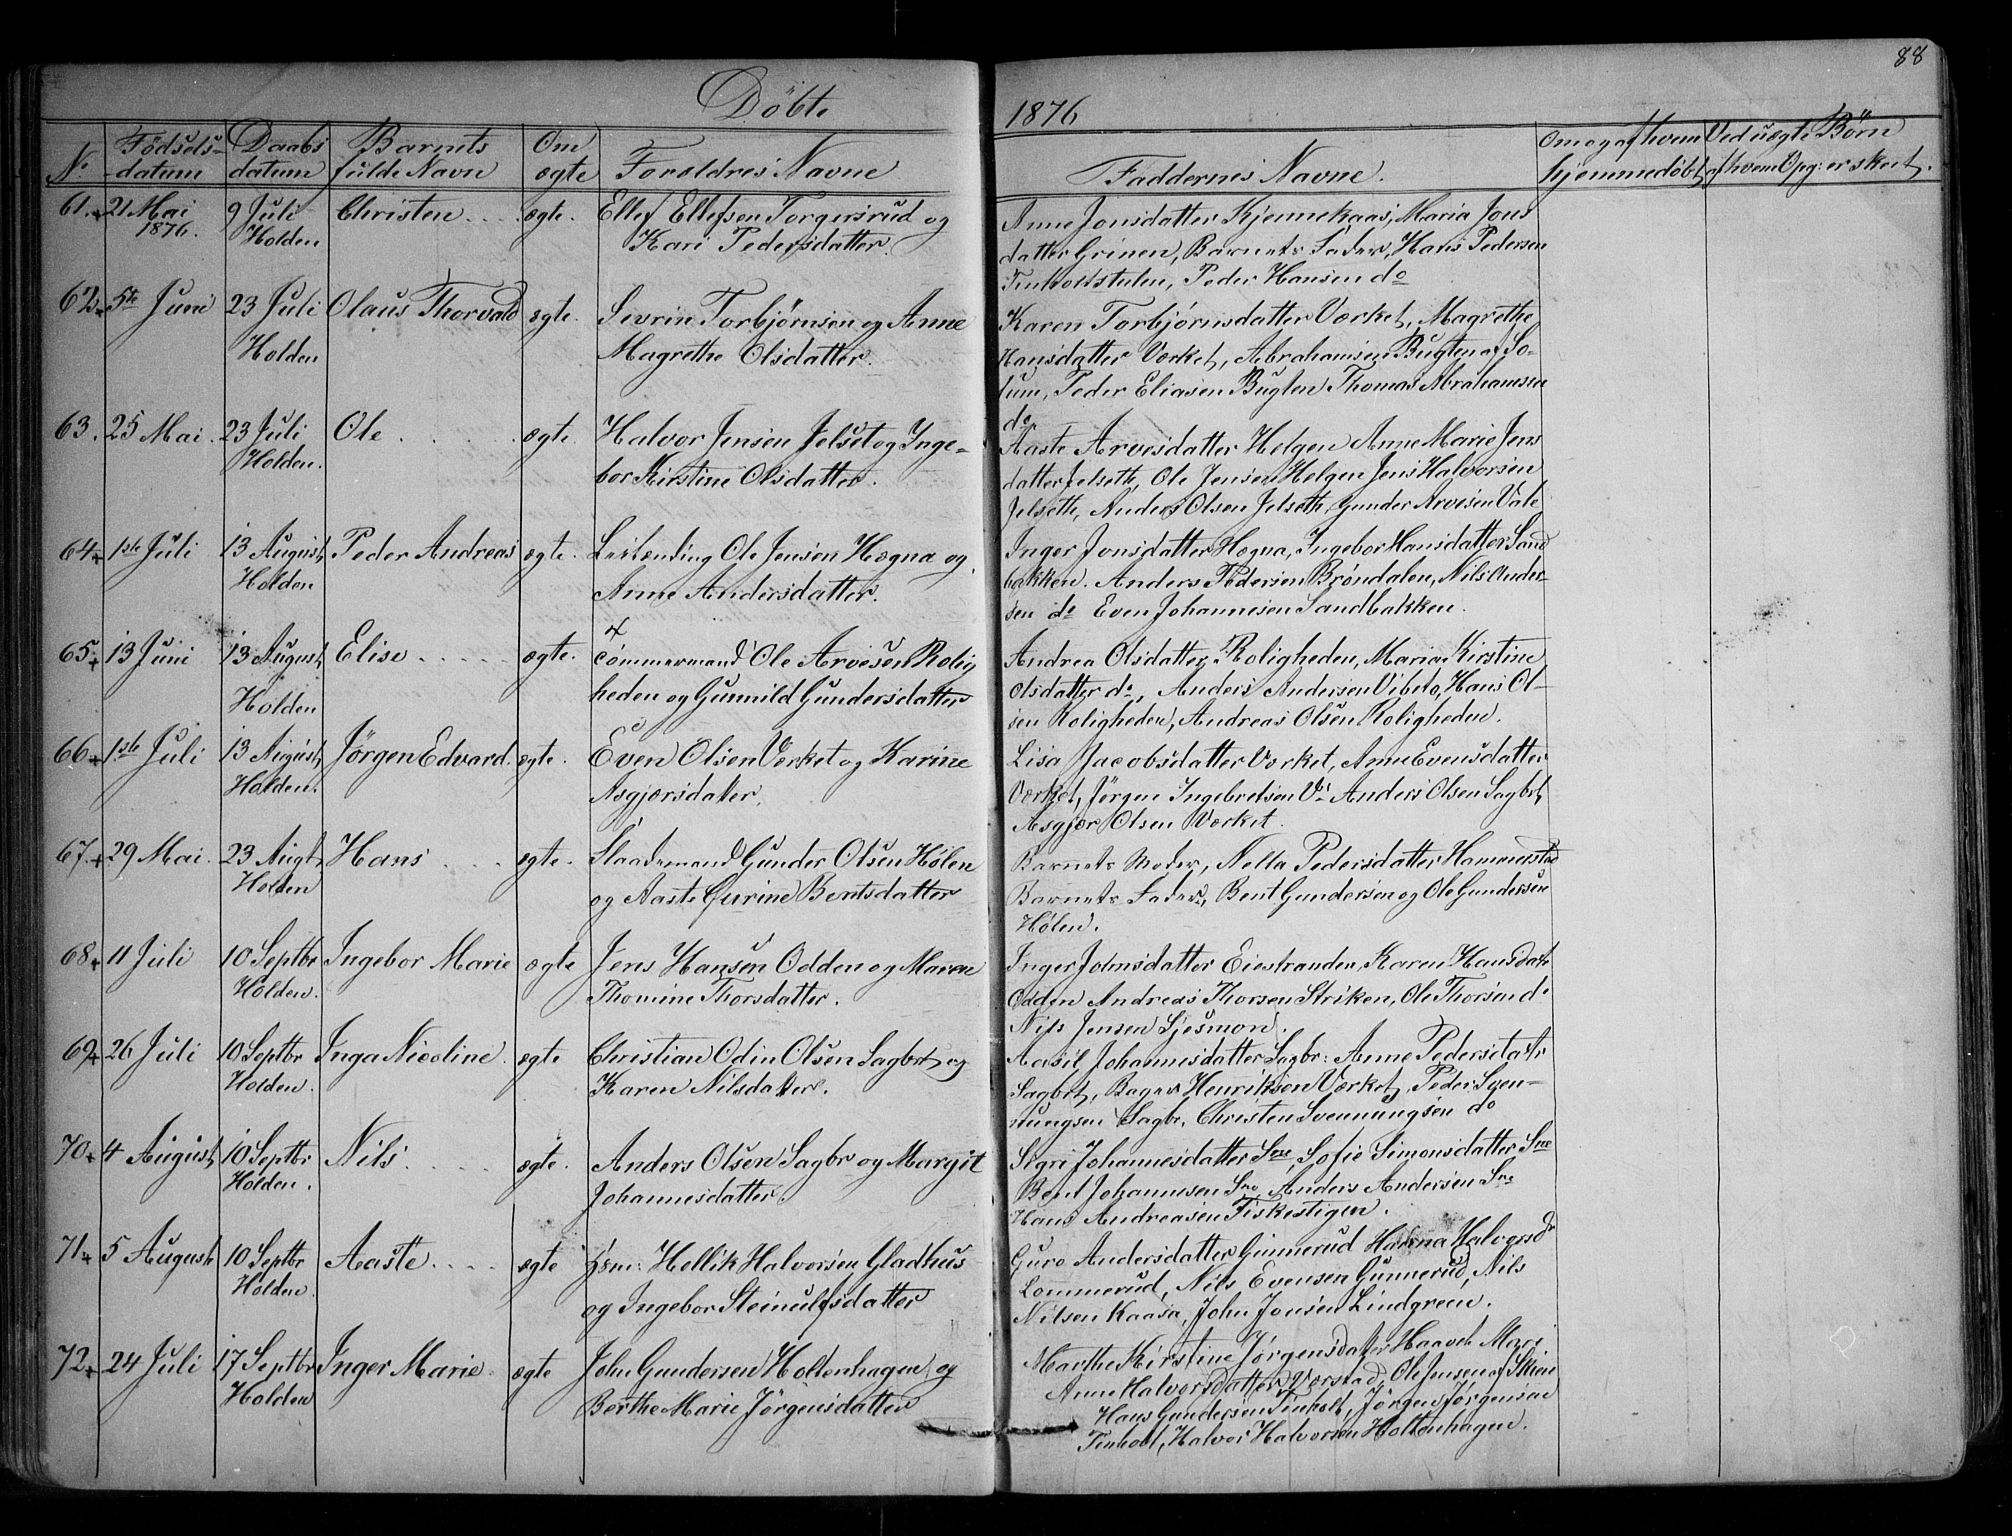 88
Döbte
1876
No
Födsels-
datum
Daabs
datum
Barnets
fulde Navn
Om
ægte
Foreldres Navne
Faddernes Navne.
Om og af hvem
hjemmedöbt
Ved uægte Börn
af hvem Opg: er skeet.
61. 21 Mai 9 Juli Christen ægte. Ellef Ellefsen Torgersrud og
1876. Holden Kari Pedersdatter.
Anne Jonsdatter Kjennekaas, Maria Jons
datter Grinen, Barnets Fader, Hans Pedersen
Tinholtstulen, Peder Hansen do
62. 5te Juni 23 Juli Olaus Thorvald ægte. Sevrin Torbjørnsen og Anne
Holden Magrethe Olsdatter.
Karen Torbjørnsdatter Værket, Magrethe
Hansdatter Værket, Abrahamsen Bugten af So-
lum, Peder Eliasen Bugten Thomas Abrahamsen
do
63. 25 Mai. 23 Juli Ole ægte. Halvor Jensen Jelset og Inge-
Holden. bor Kirstine Olsdatter.
Aaste Arvesdatter Helgen Anne Marie Jens
datter Jelseth, Ole Jensen Helgen Jens Halvorsen
Jelseth, Anders Olsen Jelseth, Gunder Arvesen Vale
64. 1ste Juli 13 August Peder Andreas ægte. Leilænding Ole Jensen Hægna og
Holden Anne Andersdatter.
Inger Jonsdatter Hægna, Ingebor Hansdatter Sand
bakken. Anders Pedersen Brøndalen, Nils Ander-
sen do Even Johannesen Sandbakken.
65. 13 Juni 13 August Elise ægte. Tömmermand Ole Arvesen Rolig
Holden heden og Gunnild Gundersdatter
Andrea Olsdatter Roligheden, Maria Kirstine
Olsdatter do, Anders Andersen Vibeto, Hans Ol-
sen Roligheden, Andreas Olsen Roligheden.
66. 1ste Juli 13 August Jörgen Edvard. ægte. Even Olsen Værket og Karine
Holden. Asgjærsdatter.
Lisa Jacobsdatter Værket, Anne Evensdatter
Værket, Jörgen Ingebretsen V. Anders Olsen Sagbr,
Asgjær Olsen Værket.
67. 29 Mai. 23 Augt Hans ægte. Gunder Olsen Hølen
Holden og Aaste Gurine Bentsdatter
Barnets Moder, Nella Pedersdatter Hammerstad
Barnets Fader, Bent Gundersen og Ole Gundersen
Hølen.
68. 11 Juli 10 Septbr Ingebor Marie ægte Jens Hansen Odden og Maren
Holden. Thomine Thorsdatter.
Inger Johnsdatter Eiestranden, Karen Hansdatr
Odden Andreas Thorsen Striken, Ole Thorsen do
Nils Jensen Ljesmon.
69. 26 Juli 10 Septbr Inga Nicoline. ægte Christian Odin Olsen Sagbrt og
Holden. Karen Nilsdatter.
Aasil Johannesdatter Sagbr: Anne Pedersdatr
Sagbrt, Bager Henriksen Værket, Peder Sven-
nungsen Sagbr, Christen Svennungsen do
70. 4 August 10 Septbr Nils ægte. Anders Olsen Sagbr og Margit
Holden. Johannesdatter.
Sigri Johannesdatter Sne, Sofie Simonsdatter Sne
Bent Johannesen Sne Anders Andersen Sne
Hans Andreasen Fiskestigen.
71. 5 August 10 Septbr Aaste ægte Hellik Halvorsen Gladhus
Holden. og Ingebor Steinulfsdatter
Guro Andersdatter Gunnerud Hanna Halvorsdr
Lommerud, Nils Evensen Gunnerud, Nils
Nilsen Kaasa, John Jonsen Lindgreen.
72. 24 Juli 17 Septbr Inger Marie ægte John Gundersen Holtenhagen og
Holden Berthe Marie Jörgensdatter
Marthe Kirstine Jörgensdater Mari
Anne Halvorsdatter Værstad, Ole Jensen af Skien
Hans Gundersen Tinholt, Jörgen Jörgensen
Tinholt, Halvor Halvorsen Holtenhagen.